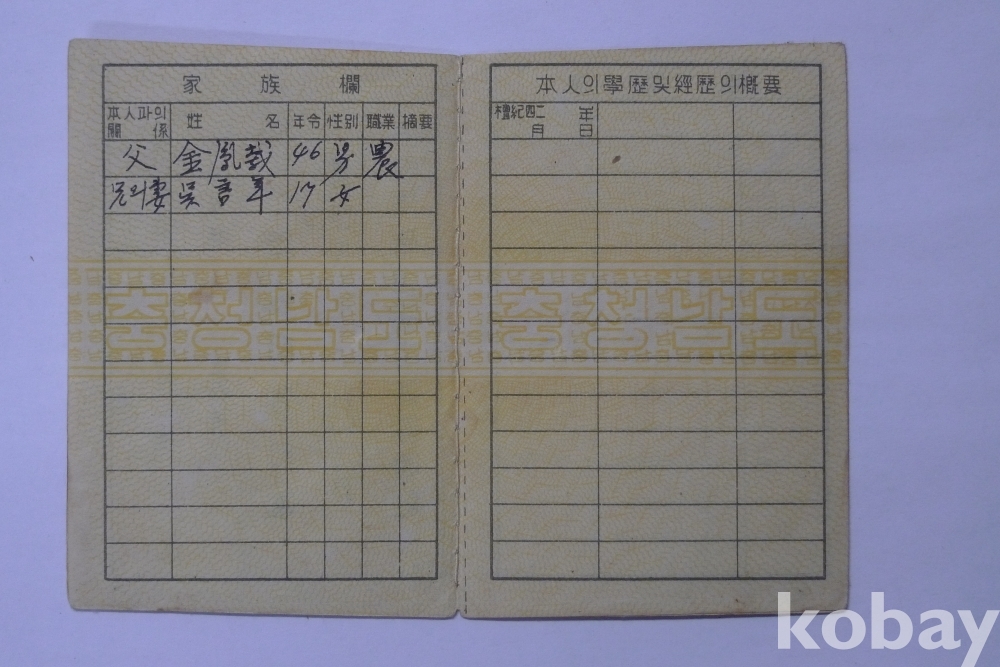 家族欄
本人과의 關係 姓名 年令 性別 職業 摘要
父 金鳳哉 46 男 農
兄의妻 吳言年 17 女
충청남도
本人의學歷및經歷의槪要
檀紀四二 年 月 日
충청남도
kobay